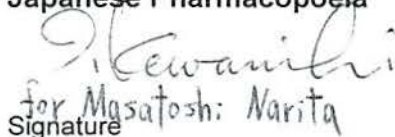 Japanese Pharmacopoeia
for Masatoshi Narita
Signature